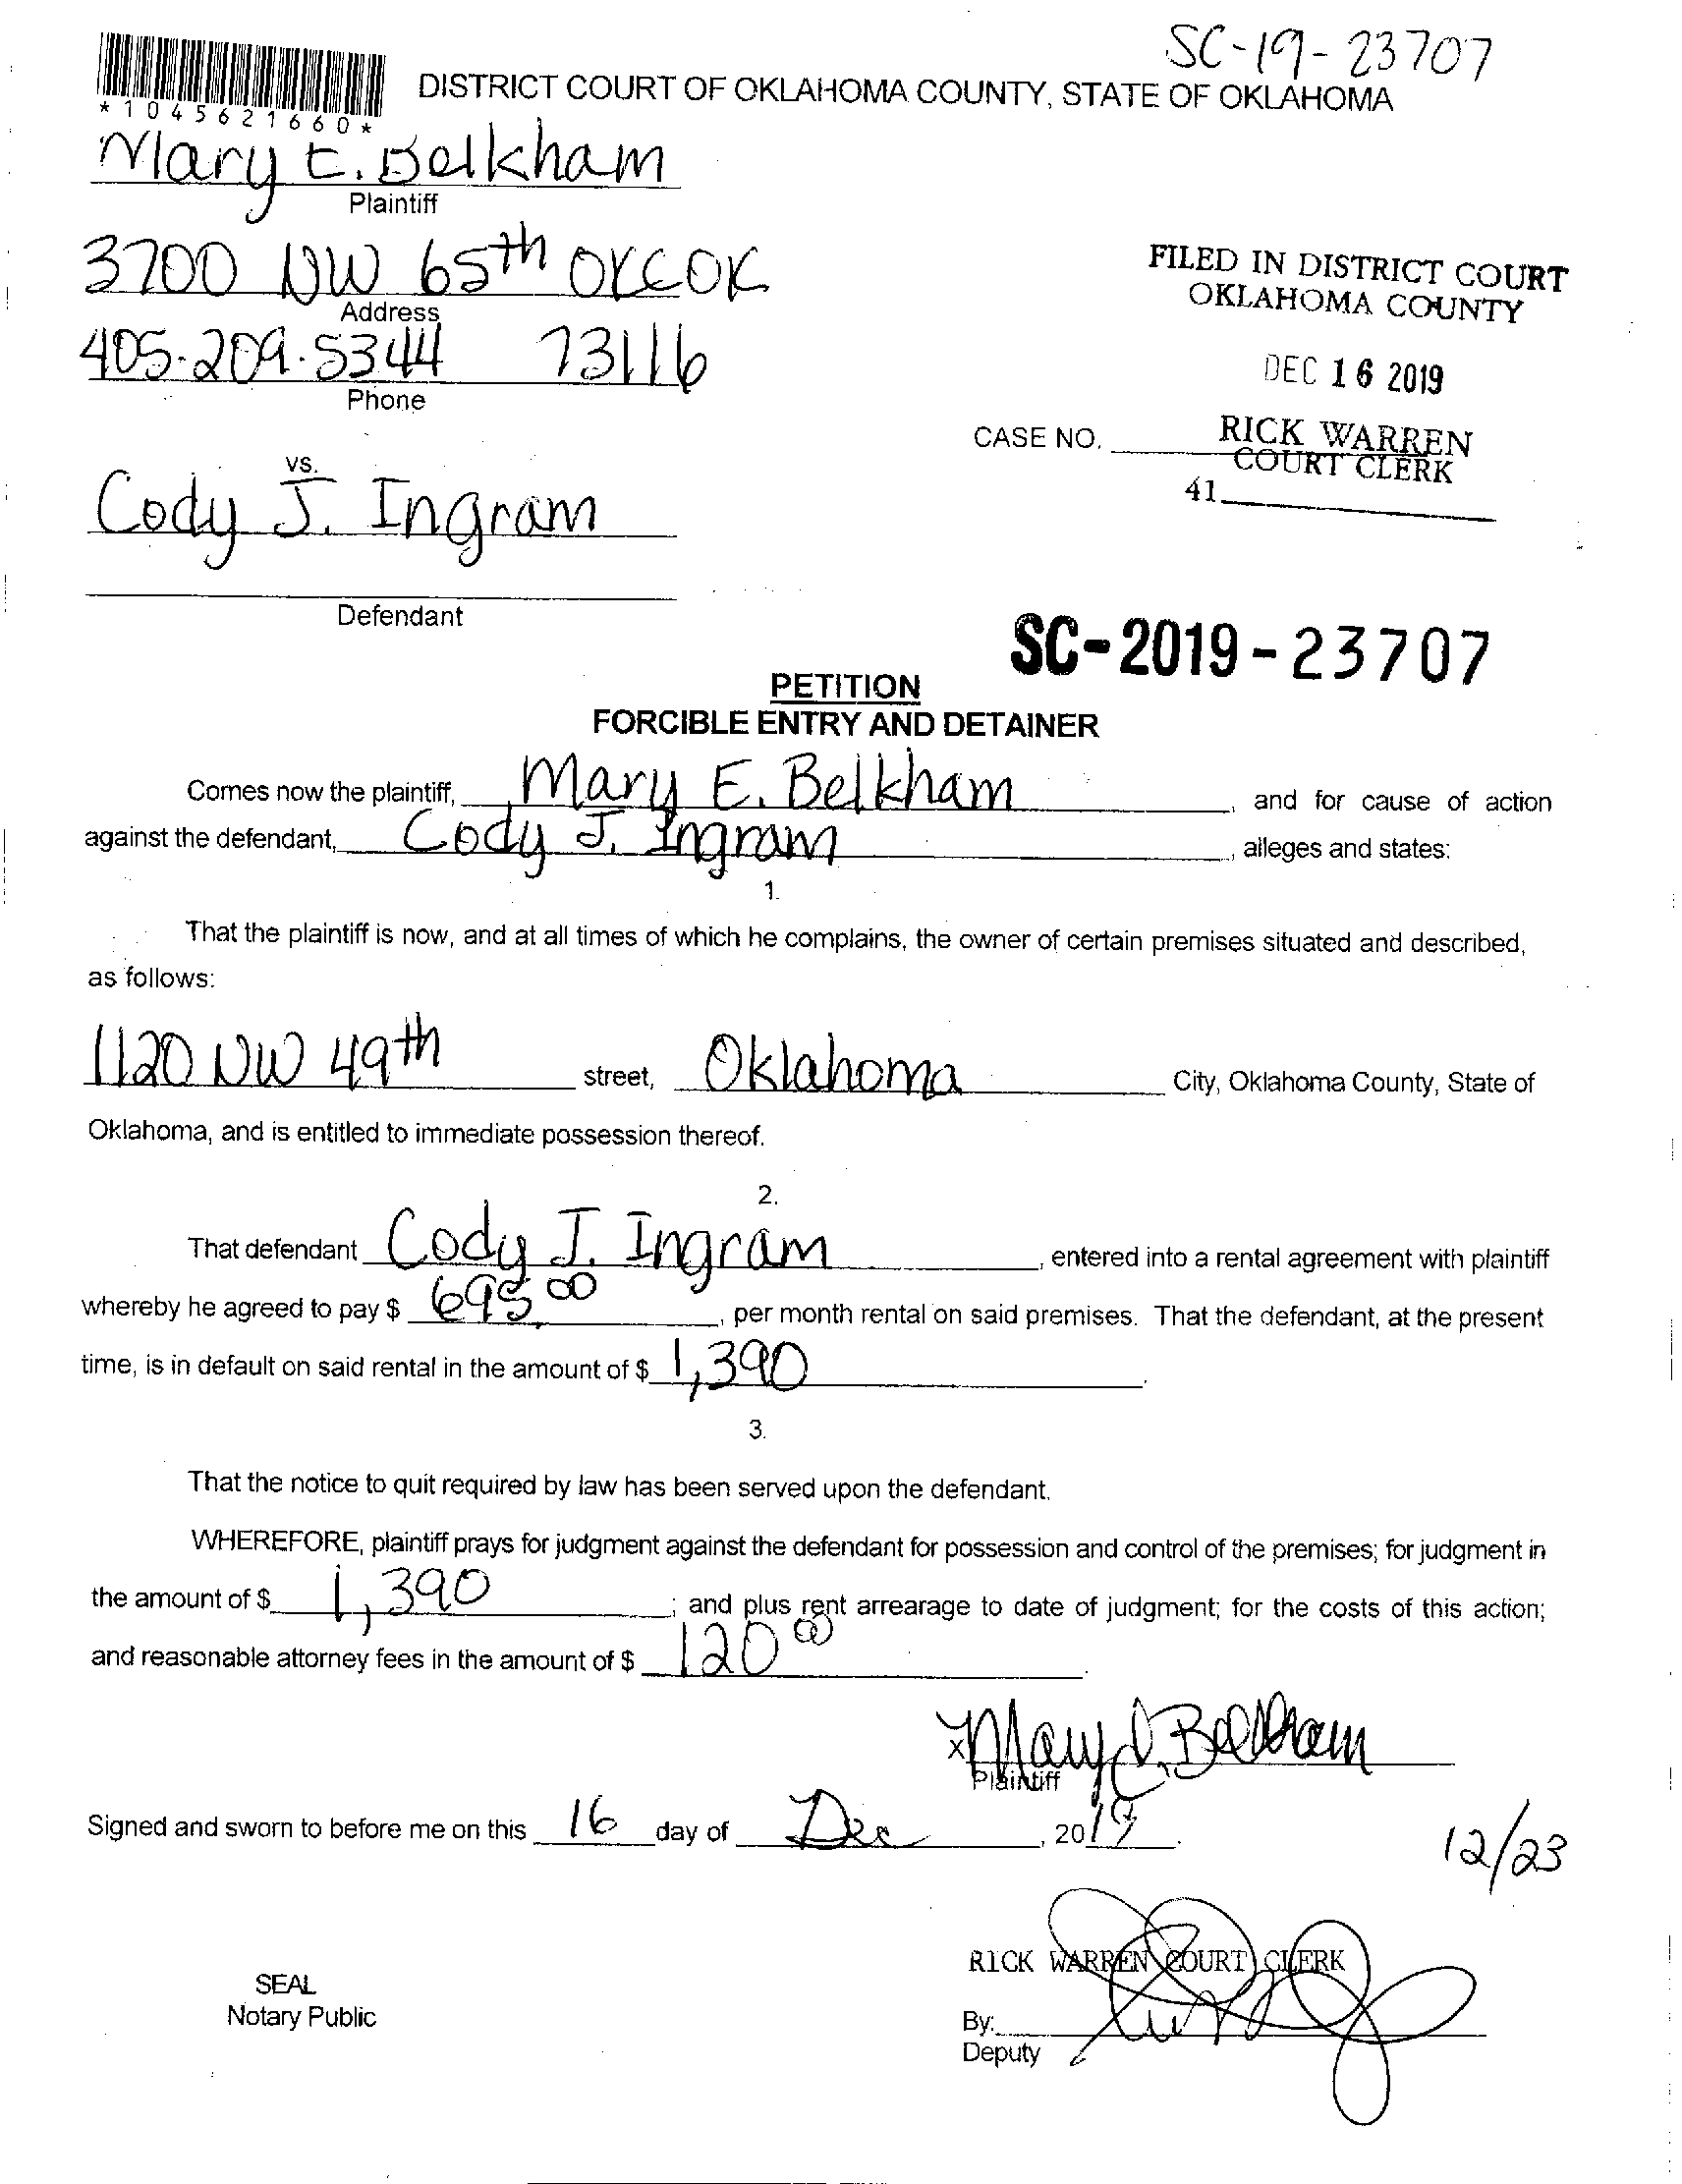 SC-19-23707
DISTRICT COURT OF OKLAHOMA COUNTY, STATE OF OKLAHOMA
*1045621660*
Mary E. Belkham
Plaintiff
3700 NW 65th OKC OK
Address
405-209-5344 73116
Phone
FILED IN DISTRICT COURT
OKLAHOMA COUNTY
DEC 16 2019
RICK WARREN
COURT CLERK
CASE NO.
41
vs.
Cody J. Ingram
Defendant
SC-2019-23707
PETITION
FORCIBLE ENTRY AND DETAINER
Comes now the plaintiff, Mary E. Belkham, and for cause of action
against the defendant, Cody J. Ingram, alleges and states:
1.
That the plaintiff is now, and at all times of which he complains, the owner of certain premises situated and described,
as follows:
1120 NW 49th street, Oklahoma City, Oklahoma County, State of
Oklahoma, and is entitled to immediate possession thereof.
2.
That defendant Cody J. Ingram, entered into a rental agreement with plaintiff
whereby he agreed to pay $ 695.00, per month rental on said premises. That the defendant, at the present
time, is in default on said rental in the amount of $ 1,390.
3.
That the notice to quit required by law has been served upon the defendant.
WHEREFORE, plaintiff prays for judgment against the defendant for possession and control of the premises; for judgment in
the amount of $ 1,390; and plus rent arrearage to date of judgment; for the costs of this action;
and reasonable attorney fees in the amount of $ 120 00.
x Mary E. Belkham
Plaintiff
Signed and sworn to before me on this 16 day of Dec, 2019.
12/23
RICK WARREN COURT CLERK
SEAL
Notary Public
By:
Deputy